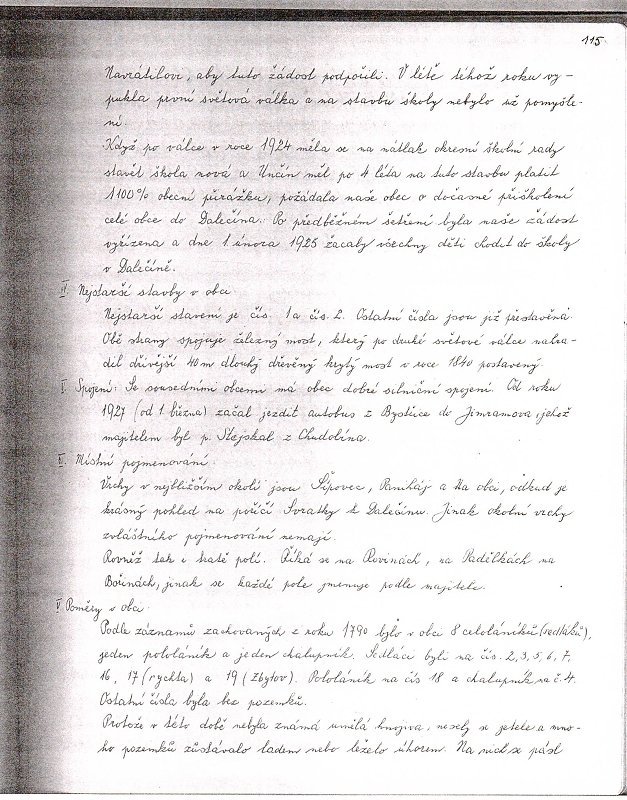 115.
Navrátilovi, aby tuto žádost podpořili. V létě téhož roku vy-
pukla první světová válka a na stavbu školy nebylo už pomyšle-
ní.
Když po válce v roce 1924 měla se na nátlak okresní školní rady
stavět škola nová a Unčín měl po 4 léta na tuto stavbu platit
1100% obecní přirážku, požádala naše obec o dočasné přiškolení
celé obce do Dalečína. Po předběžném šetření byla naše žádost
vyřízena a dne 1. února 1925 začaly všechny děti chodit do školy
v Dalečíně.
Nejstarší stavby v obci
Nejstarší stavení je čís. 1 a čís. 2. Ostatní čísla jsou již přestavěná.
Obě strany spojuje železný most, který po druhé světové válce nahra-
dil dřívější 40 m dlouhý dřevěný krytý most v roce 1840 postavený.
Spojení: Se sousedními obcemi má obec dobré silniční spojení. Od roku
1927 (od 1. března) začal jezdit autobus z Bystřice do Jimramova, jehož
majitelem byl p. Stejskal z Chudobína.
Místní pojmenování.
Vrchy v nejbližším okolí jsou Šípovec, Paniháj a Na obci, odkud je
krásný pohled na poříčí Svratky k Dalečínu. Jinak okolní vrchy
zvláštního pojmenování nemají.
Rovněž tak i tratě polí. Říká se na Rovinách, na Padělkách na
Bořinách, jinak se každé pole jmenuje podle majitele.
Poměry v obci
Podle záznamů zachovaných z roku 1790 bylo v obci 8 celoláníků (sedláků),
jeden pololáník a jeden chalupník. Sedláci byli na čís. 2, 3, 5, 6, 7,
16, 17 (rychta) a 19 (Zbytov). Pololáník na čís 18 a chalupník na č. 4.
Ostatní čísla byla bez pozemků.
Protože v této době nebyla známá umělá hnojiva, nesely se jetele a mno-
ho pozemků zůstávalo ladem nebo leželo úhorem. Na nich se pásl